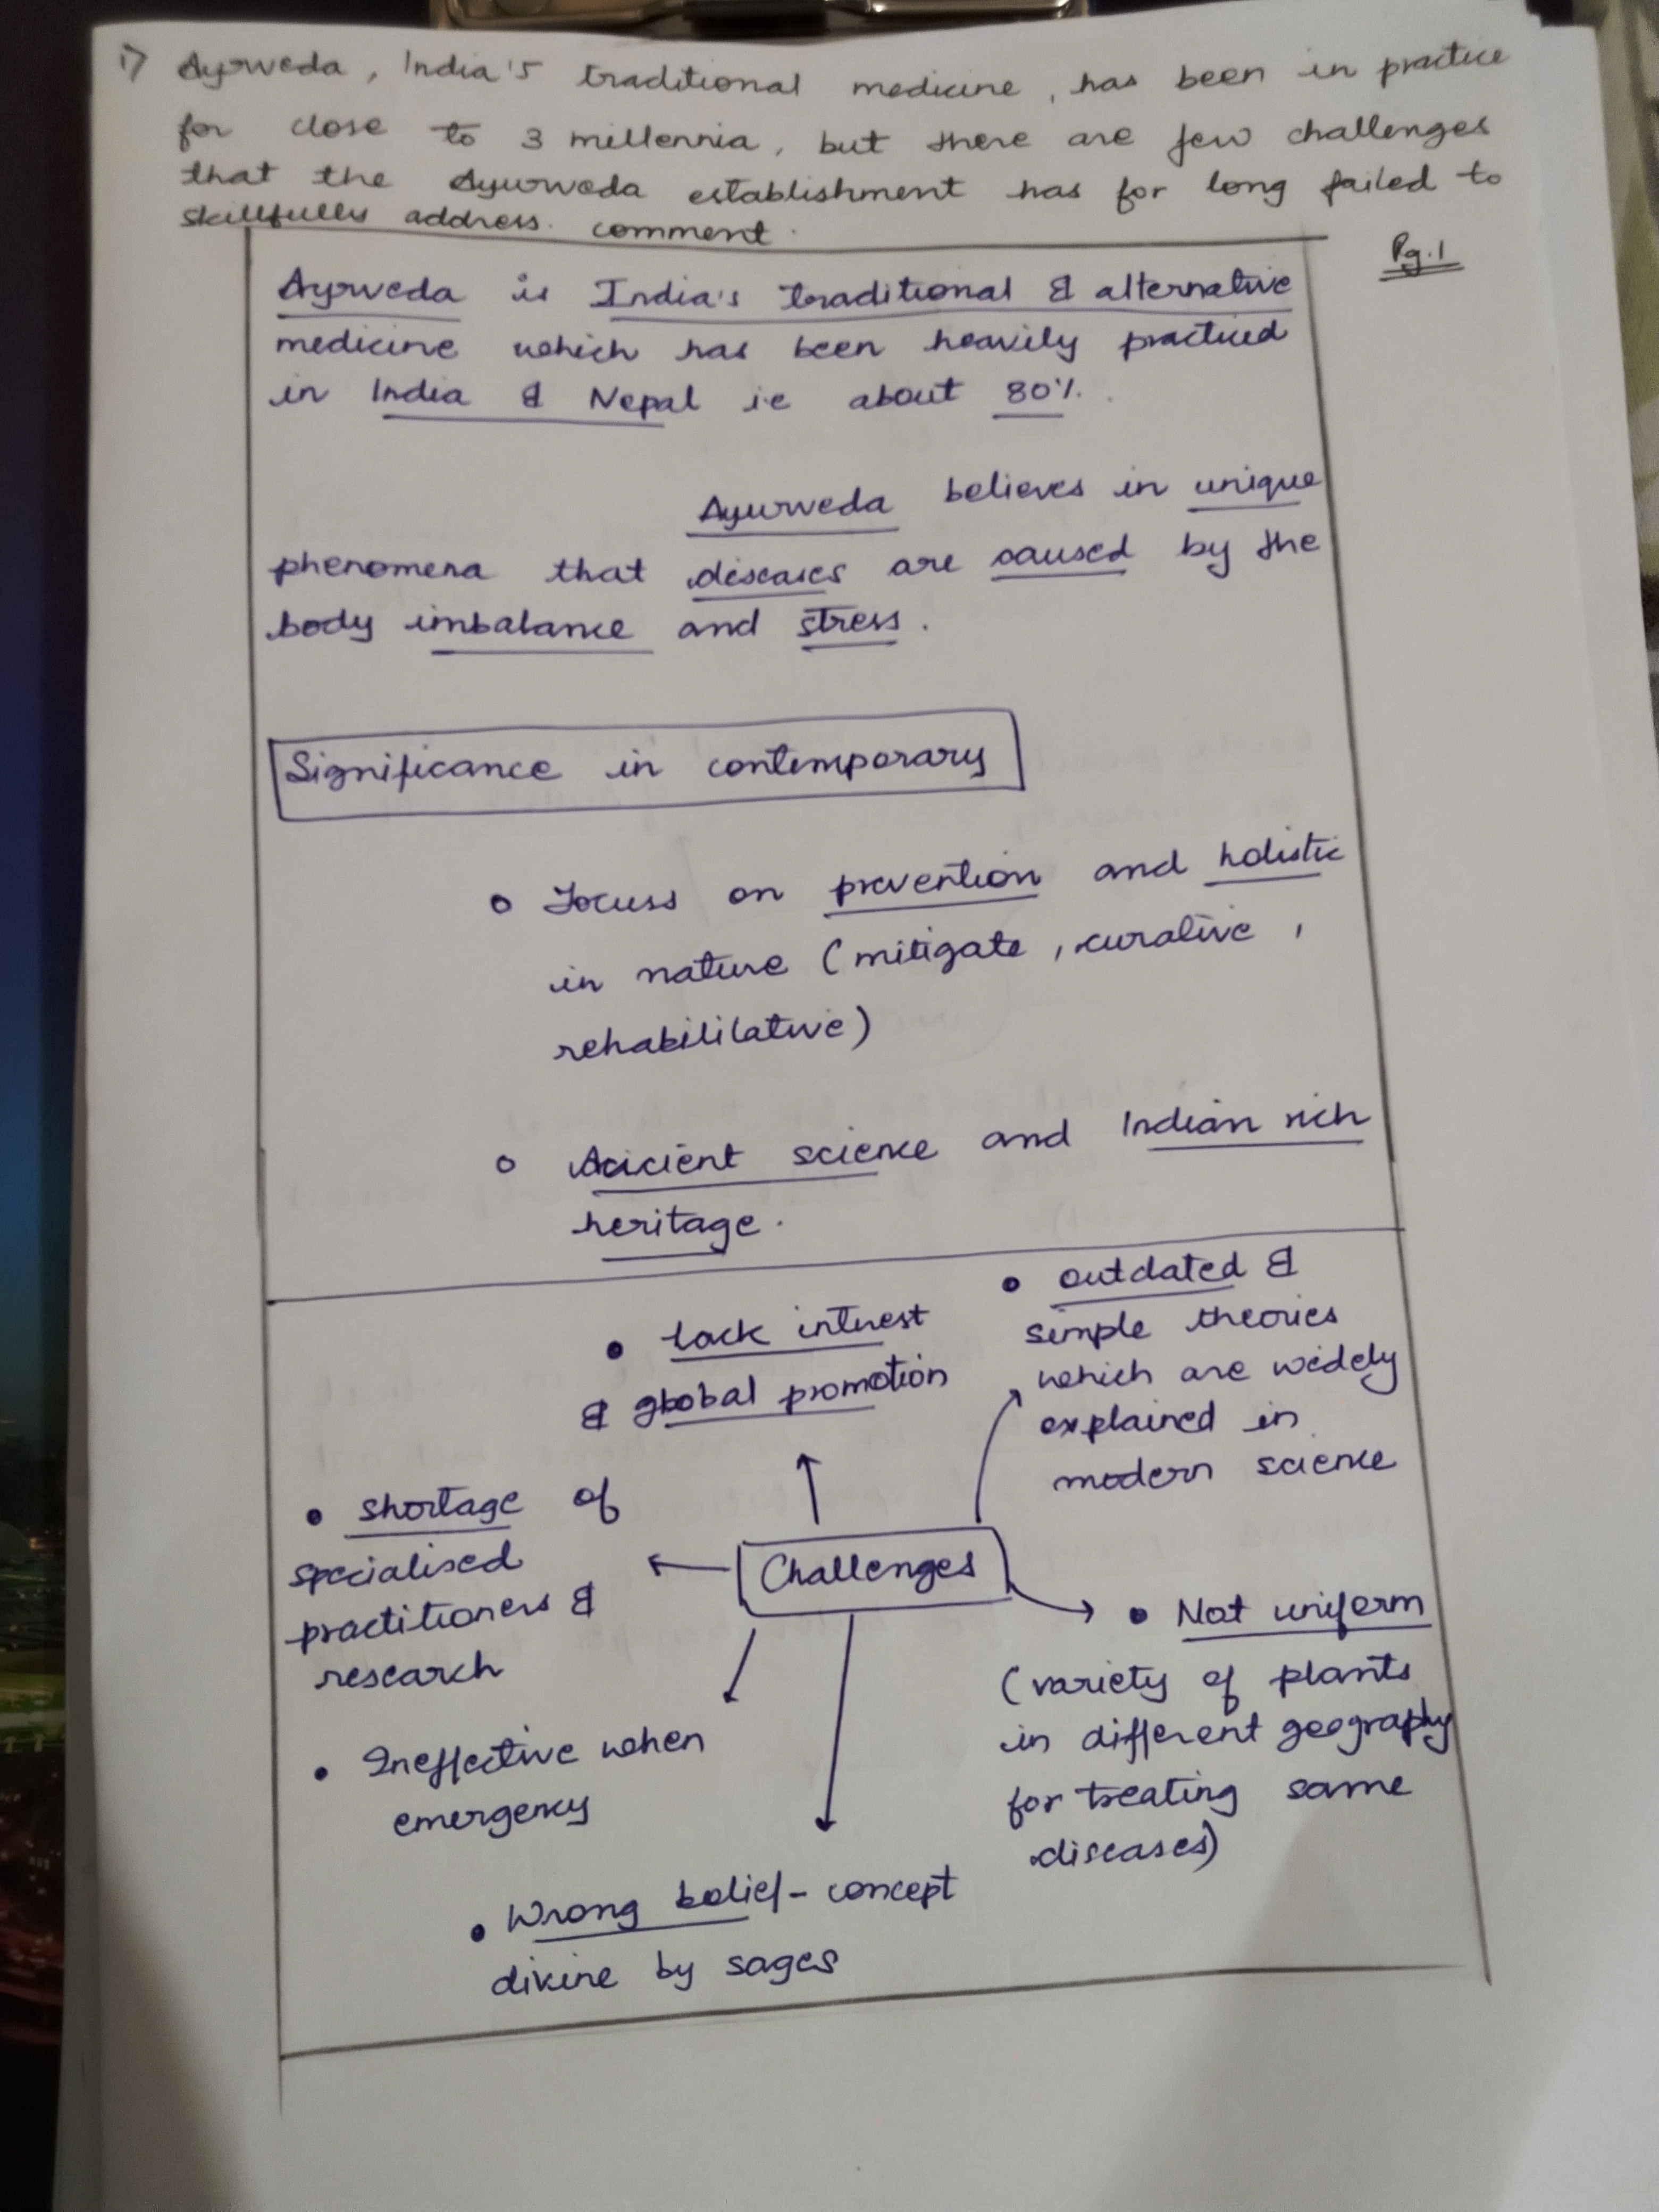 1) Ayrweda, India's traditional medicine, has been in practice
for close to 3 millennia, but there are few challenges
that the Ayurweda establishment has for long failed to
skillfully address. comment.
Pg.1
Ayrveda is India's traditional & alternative
medicine which has been heavily practiced
in India & Nepal ie about 80%.
Ayurweda believes in unique
phenomena that diseases are caused by the
body imbalance and stress.
Significance in contemporary
o Focuss on prevention and holistic
in nature (mitigate, curative,
rehabililative)
o Acicient science and Indian rich
heritage.
• outdated &
simple theories
which are widely
explained in
modern science
• Lack interest
& gbobal promotion
• shortage of
specialised
practitioners &
research
Challenges
• Not uniform
(variety of plants
in different geography
for treating same
diseases)
• Ineffective when
emergency
• Wrong belief - concept
divine by sages